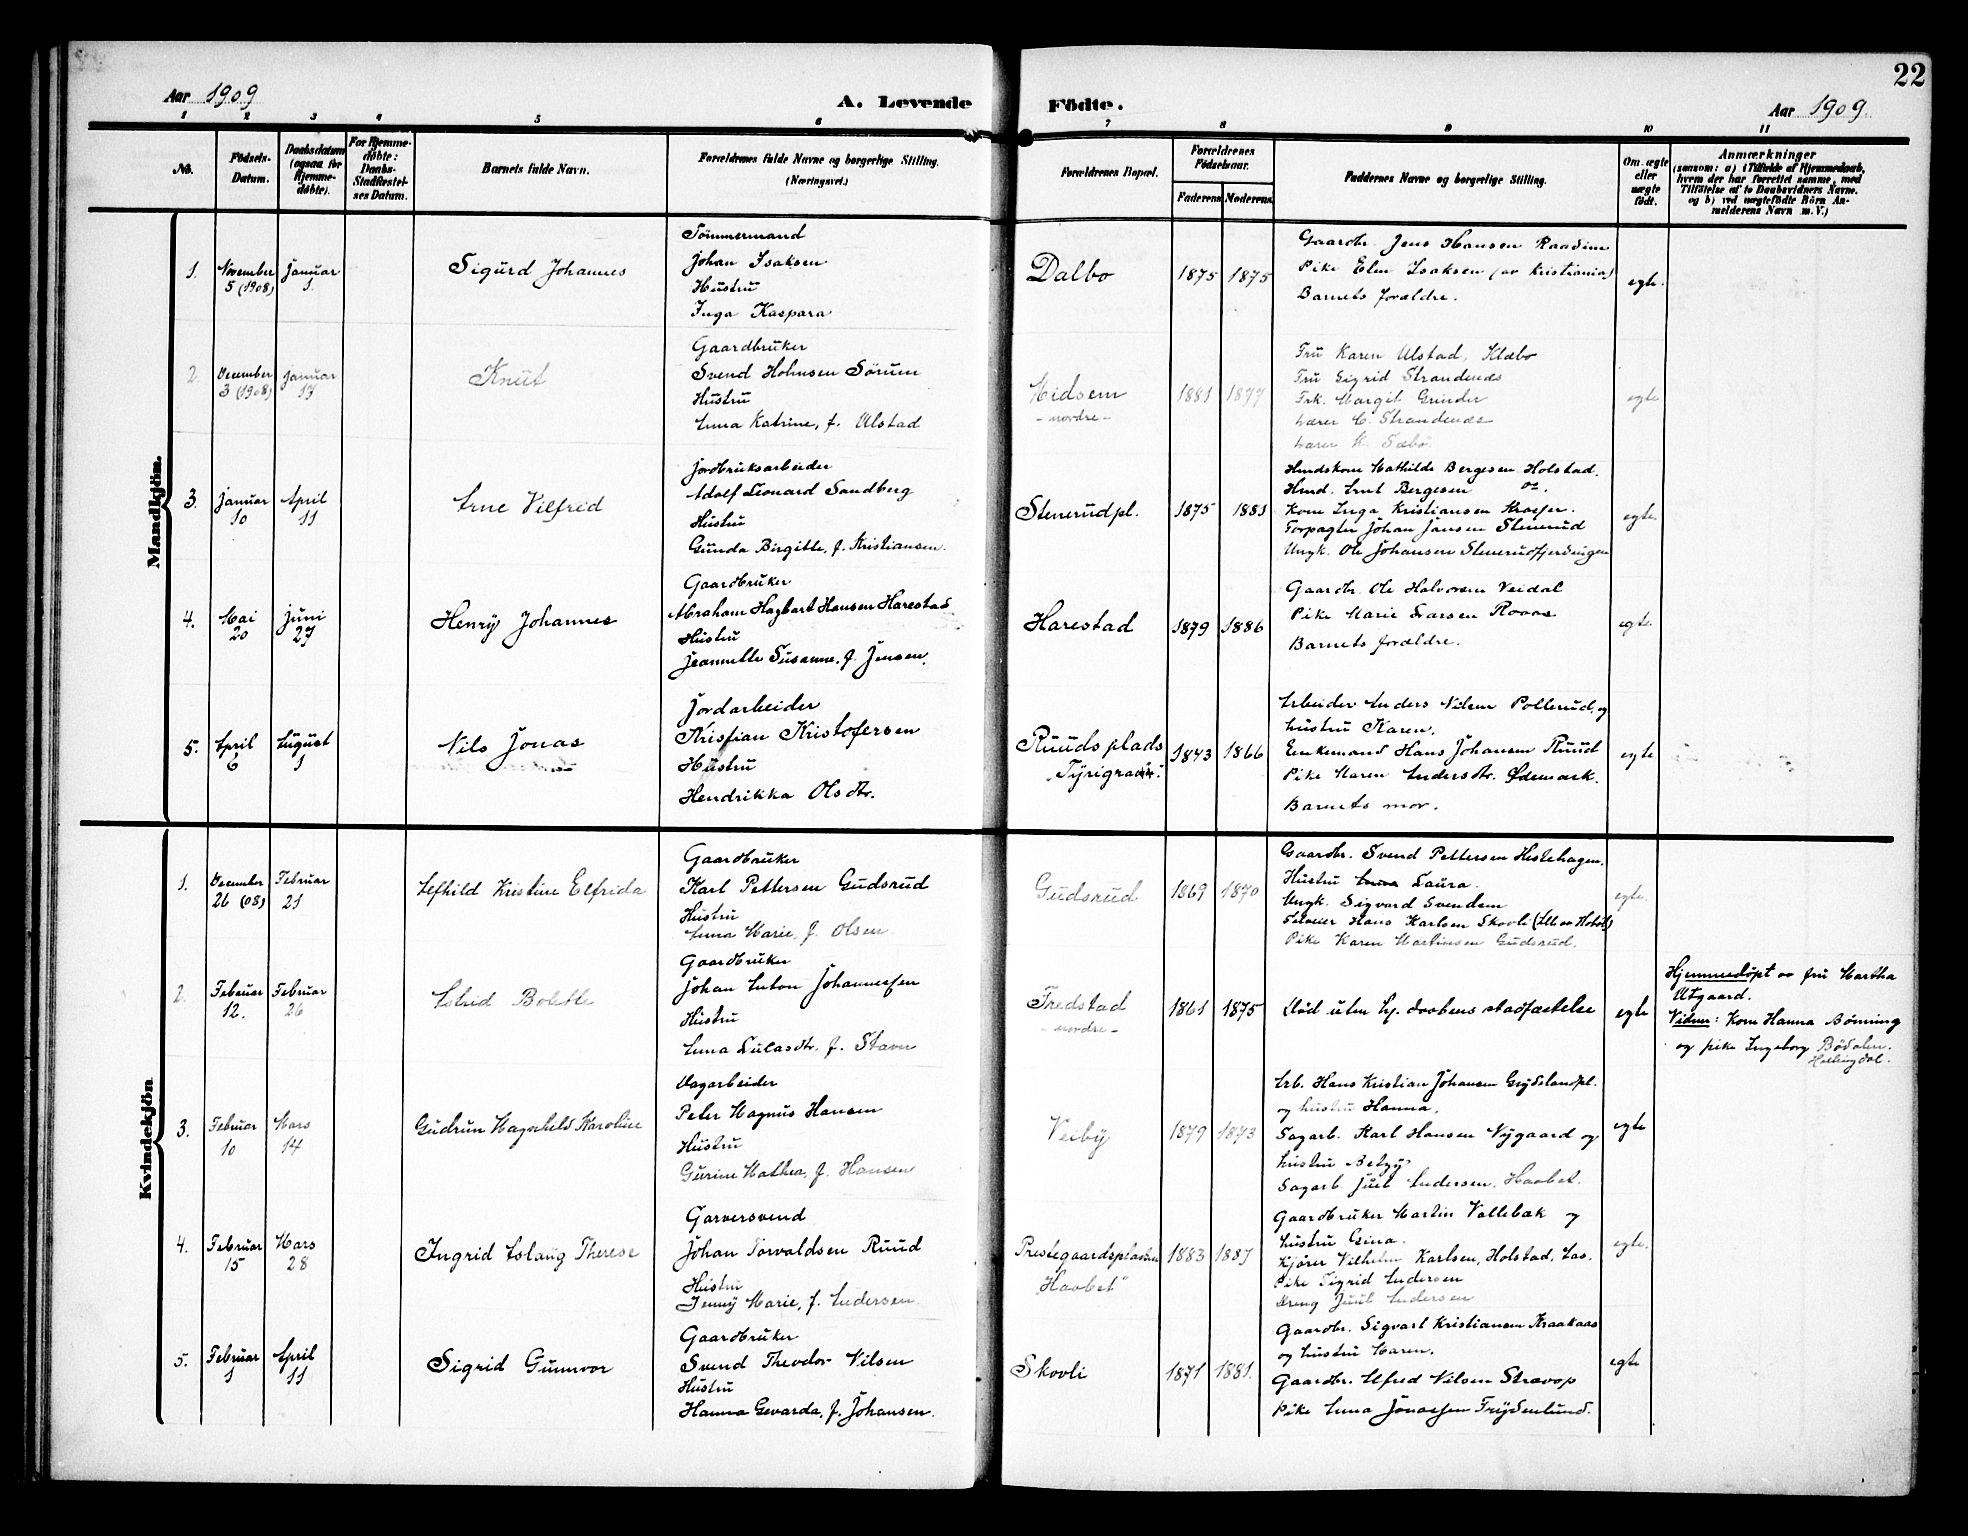 22
Aar 1909
A. Levende
Födte.
Aar 1909.
1 2 3 4 5 6 7 8 9 10 11
No.
Födsels-
Datum.
Daabsdatum
(ogsaa for
Hjemme-
döbte).
For Hjemme-
döbte:
Daabs-
Stadfæstel-
ses Datum.
Barnets fulde Navn.
Forældrenes fulde Navne og borgerlige Stilling.
(Næringsvei.)
Forældrenes Bopæl.
Forældrenes
Födselsaar.
Faderens Moderens
Faddernes Navne og borgerlige Stilling.
Om ægte
eller
uægte
födt.
Anmærkninger
(saasom: a) i Tilfælde af Hjemmedaab,
hvem der har forrettet samme, med
Tilföielse af to Daabsvidners Navne,
og b) ved uægtefödte Börn An-
melderens Navn m. V.)
Mandkjön.
1.
November
5 (1908)
Januar
1.
Sigurd Johannes
Tömmermand
Johan Isaksen
Hustru
Inga Kaspara
Dalbo
1875
1875
Gaardbr. Jens Hansen Raadim
Pike Elen Isaksen (av Kristiania)
Barnets forældre.
egte.
2.
December
3 (1908)
Januar
17
Knut
Gaardbruker
Svend Holmsen Sörum
Hustru
Anna Katrine, f. Ulstad
Midsem
- nordre -
1881
1877
Fru Karen Ulstad, Klæbo
Fru Sigrid Strandenæs
Frk. Margit Grinder
Lærer C. Strandenæs
Lærer K. Sæbö.
egte
3.
Januar
10
April
11
Arne Vilfred
Jordbruksarbeider
Adolf Leonard Sandberg
Hustru
Gunda Birgitte, f. Kristiansen.
Stenerudpl.
1875
1881
Husmkone Mathilde Bergesen Holstad.
Husmd. Arnt Bergesen
Kone Inga Kristiansen Kraafjer.
Forpagter Johan Jansen Stenerud
Ungk. Ole Johansen Stenerudfjerdingen
egte.
4.
Mai
20
Juni
27
Henry Johannes
Gaardbruker
Abraham Hagbart Hansen Harestad
Hustru
Jeannette Susanne, f. Jensen.
Harestad
1879
1886
Gaardbr. Ole Halvorsen Veidal
Pike Marie Larsen Roaas
Barnets forældre.
egte.
5.
April
6
August
1
Nils Jonas
Jordarbeider
Kristian Kristofersen
Hustru
Hendrikka Olsdtr.
Ruuds plads
1843
1866
Arbeider Anders Nilsen Pollerud, og
hustru Karen.
Enkemand Hans Johansen Ruud
Pike Maren Andersdtr. Ødemark.
Barnets mor.
egte
Kvindekjön
1.
December
26 (08)
Februar
21
Alfhild Kristine Elfrida
Gaardbruker
Karl Pettersen Gudsrud
Hustru
Anna Marie, f. Olsen.
Gudsrud
1869
1870
Gaardbr. Svend Pettersen Hestehagen.
Hustru Laura.
Ungk. Sigvard Svendsen
Selveier Hans Karlsen Skovli
Pike Karen Martinsen Gudsrud.
egte.
2.
Februar
12.
Februar
26
Astrid Bolette
Gaardbruker
Johan Anton Johannessen
Hustru
Anna Lulasdtr. f. Stavn
Fredstad
- nordre -
1861
1875
Död uten hj. daabens stadfæstelse
egte
Hjemmedöpt av fru Martha
Utgaard.
Vidner: Kone Hanna Bönning
og pike Ingeborg Bödalen.
Hallingdal.
3.
Februar
10
Mars
14
Gudrun Magnhild Karoline
Dagarbeider
Peter Magnus Hansen
Hustru
Gurine Mathea, f. Hansen
Veiby
1879
1873
Arb. Hans Kristian Johansen Grydelandpl.
og hustru Hanna.
Sagarb. Karl Hansen Nygaard og
hustru Betzy
Sagarb Juul Andersen, Haabet.
egte
4.
Februar
15
Mars
28
Ingrid Aslaug Therese
Garversvend
Johan Torvaldsen Ruud
Hustru
Jenny Marie, f. Andersen.
Prestegaardspladsen
"Haabet"
1883
1887
Gaardbruker Martin Vollebæk og
hustru Gina.
Kjörer Vilhelm Karlsen, Holstad, Aas.
Pike Sigrid Andersen
Dreng Juul Andersen
egte.
5.
Februar
1
April
11
Sigrid Gunnvor
Gaardbruker
Svend Theodor Nilsen
Hustru
Hanna Gevarda, f. Johansen.
Skovli
1871
1881.
Gaardbr. Sigvart Kristiansen Kraakaas
og hustru Maren.
Gaardbr. Alfred Nilsen Stravop
Pike Anna Jonassen Frydenlund.
egte